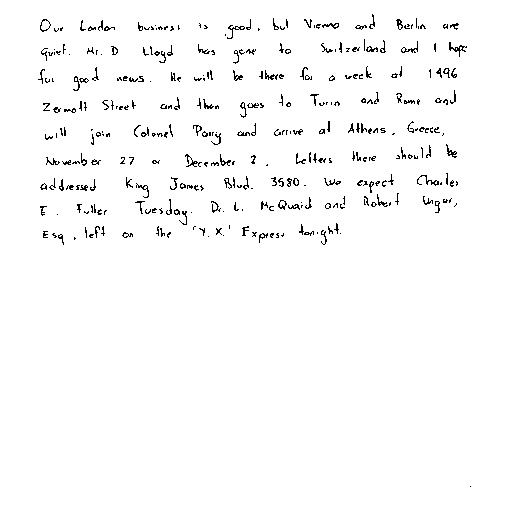 Our London business is good, but Vienna and Berlin are
quiet. Mr. D Lloyd has gone to Switzerland and I hope
for good news. He will be there for a week at 1496
Zermott Street and then goes to Turin and Rome and
will join Colonel Parry and arrive at Athens, Greece,
November 27 or December 2. Letters there should be
addressed King James Blvd. 3580. We expect Charles
E. Fuller Tuesday. Dr. L. McQuaid and Robert Unger,
Esq., left on the 'Y.X.' Express tonight.